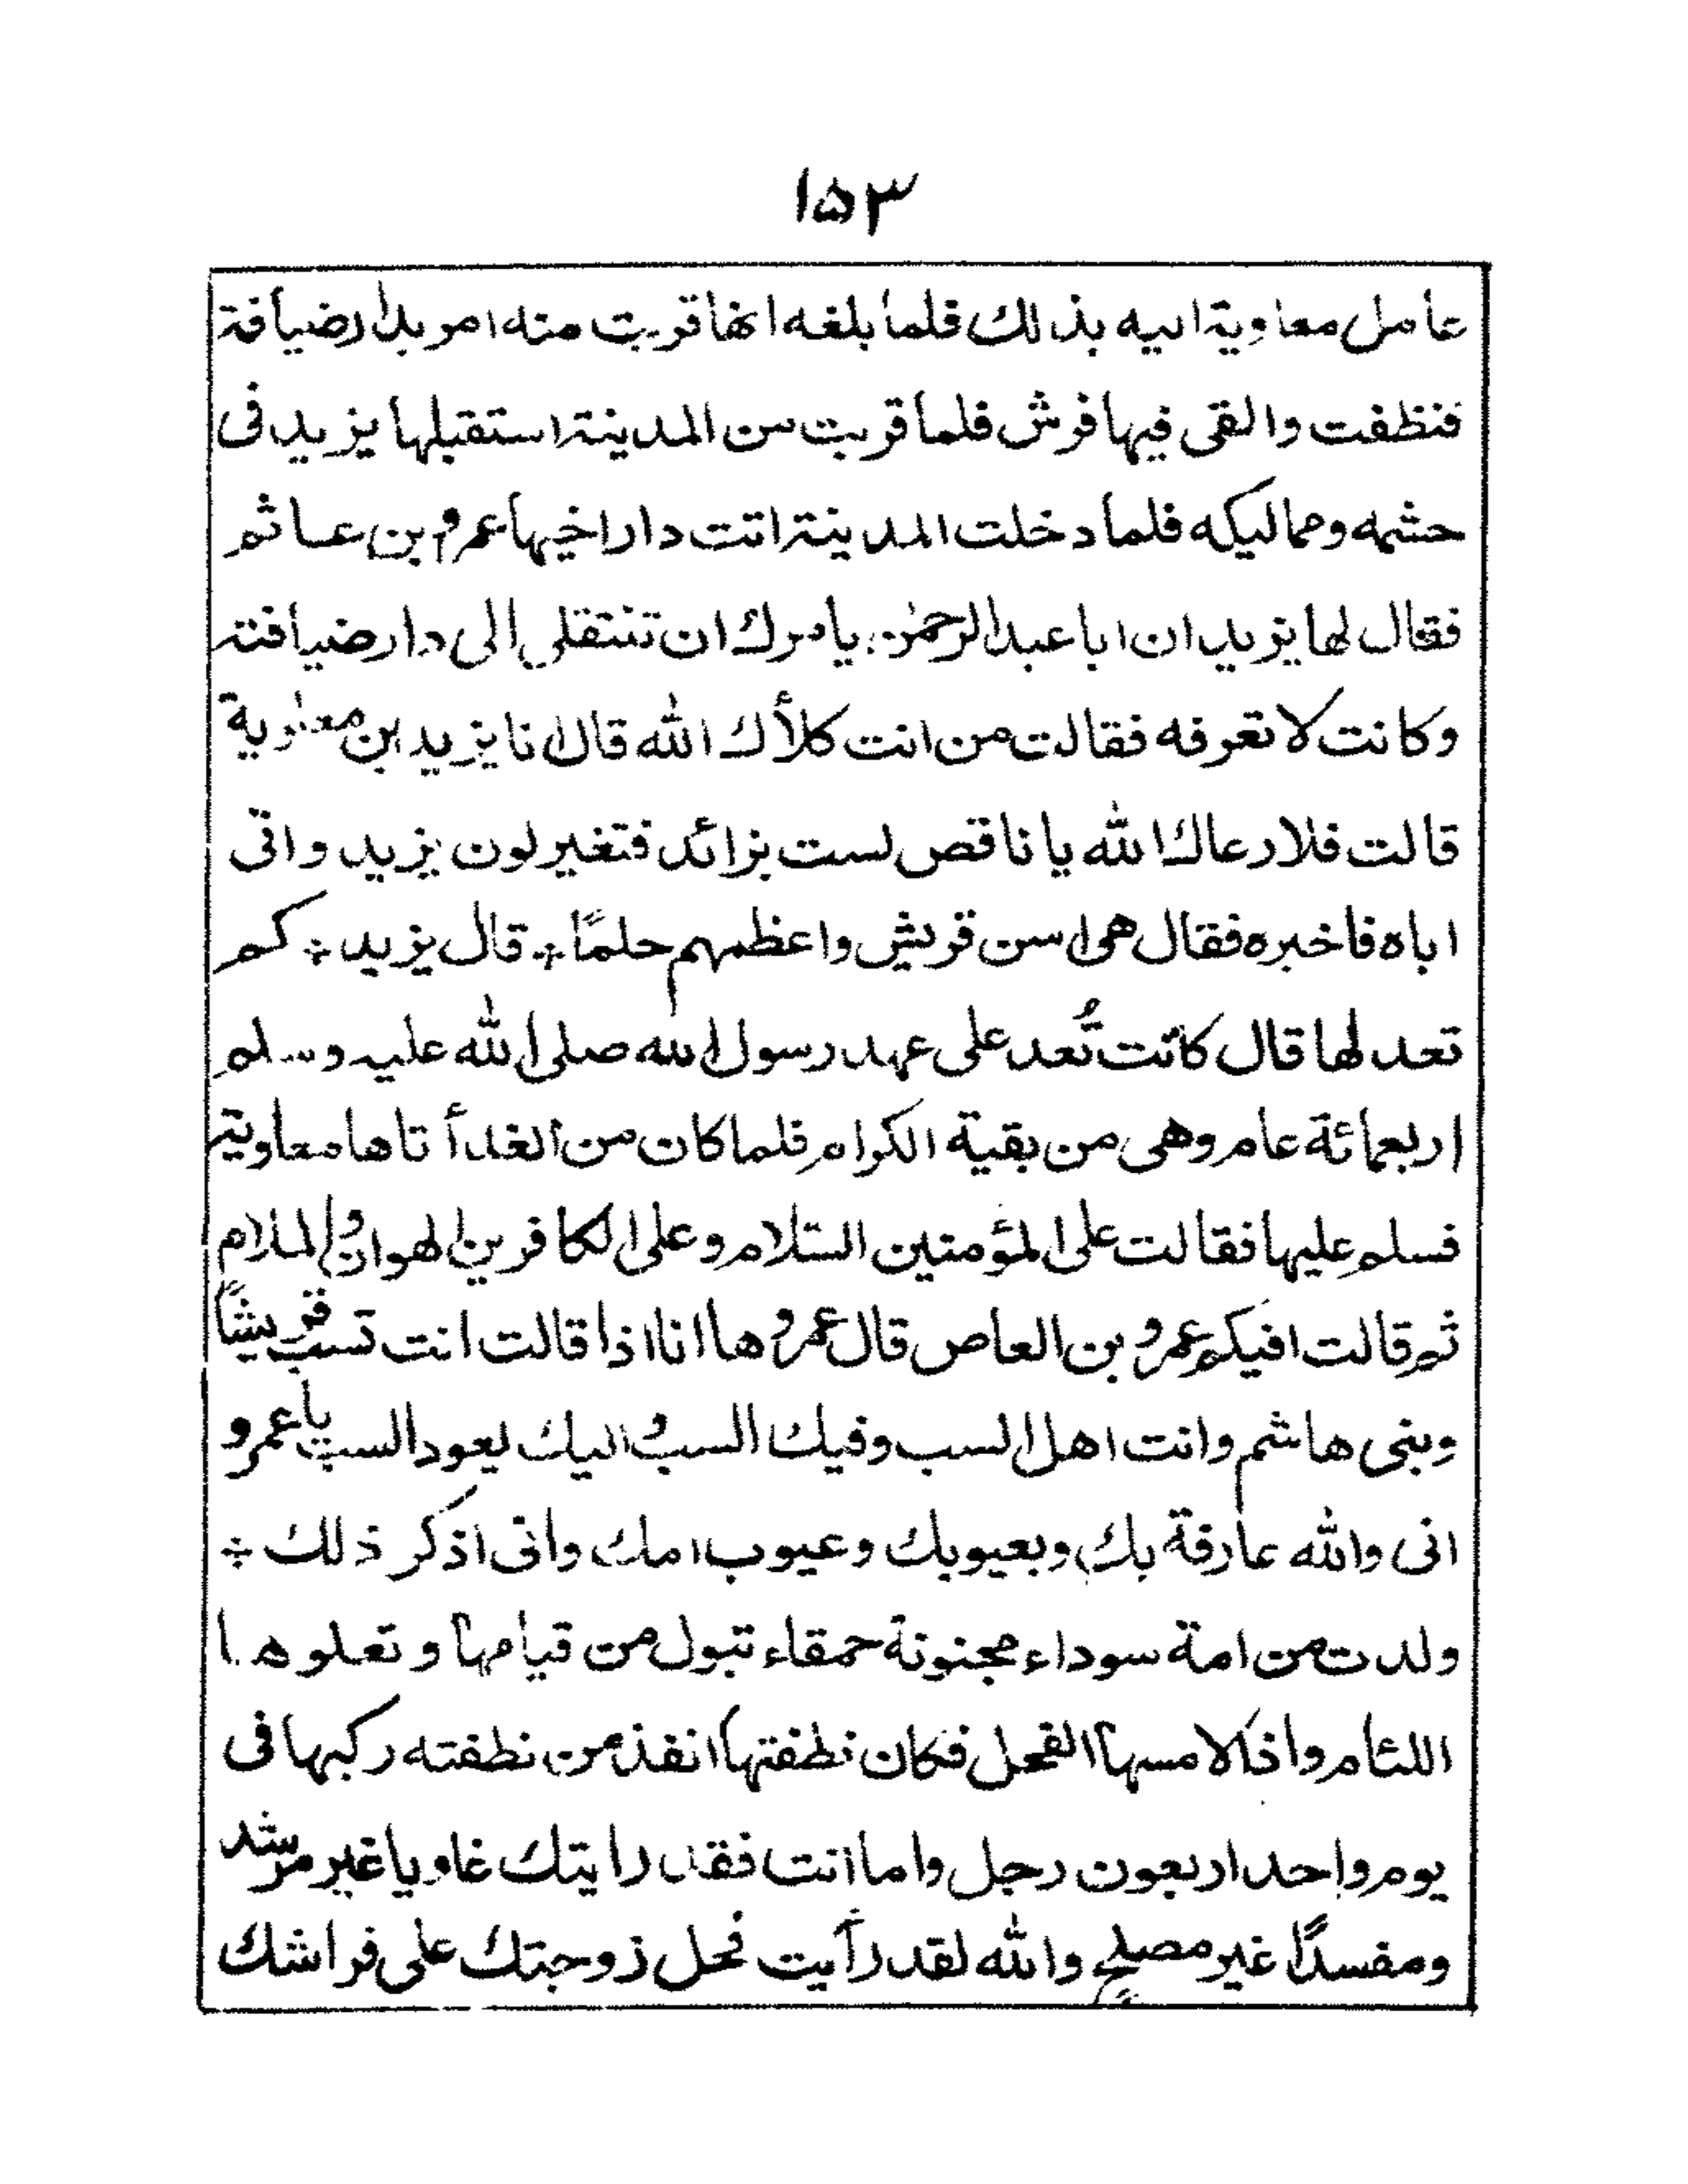 ١٥٣
عامل معاوية اليه بذلك فلما بلغه انها قربت منه امر بدار ضيافة
فنظفت والقى فيها فرش فلما قربت من المدينة استقبلها يزيد فى
حشمه ومماليكه فلما دخلت المدينة اتت دار اخيها عمرو بن عا ثم
فقال لها يزيد ان ابا عبد الرحمٰن يامرك ان تنتقلى الى دار ضيافته
وكانت لا تعرفه فقالت من انت كلأك الله قال انا يزيد بن معاوية
قالت فلا رعاك الله يا ناقص لست بزائد فتغير لون يزيد واتى
اباه فاخبره فقال هى اسن قريش واعظمهم حلمًا * قال يزيد * كم
تعد لها قال كانت تُعد على عهد رسول الله صلى الله عليه وسلم
اربعمائة عام وهى من بقية الكرام فلما كان من الغد أتاها معاوية
فسلم عليها فقالت على المؤمنين السلام وعلى الكافرين الهوان والملام
ثم قالت افيكم عمرو بن العاص قال عمرو ها انا اذا قالت انت تسب قريشًا
وبنى هاشم وانت اهل السب وفيك السب واليك يعود السب يا عمرو
انى والله عارفة بك وبعيوبك وعيوب امك وانى اذكر ذلك *
ولدت من امة سوداء مجنونة حمقاء تبول من قيامها وتعلوها
اللئام واذا لامسها الفحل فكان نطفتها انفذ من نطفته ركبها فى
يوم واحد اربعون رجل واما انت فقد رايتك غاويا غير مرشد
ومفسدًا غير مصلح والله لقد رأيت فحل زوجتك على فراشك